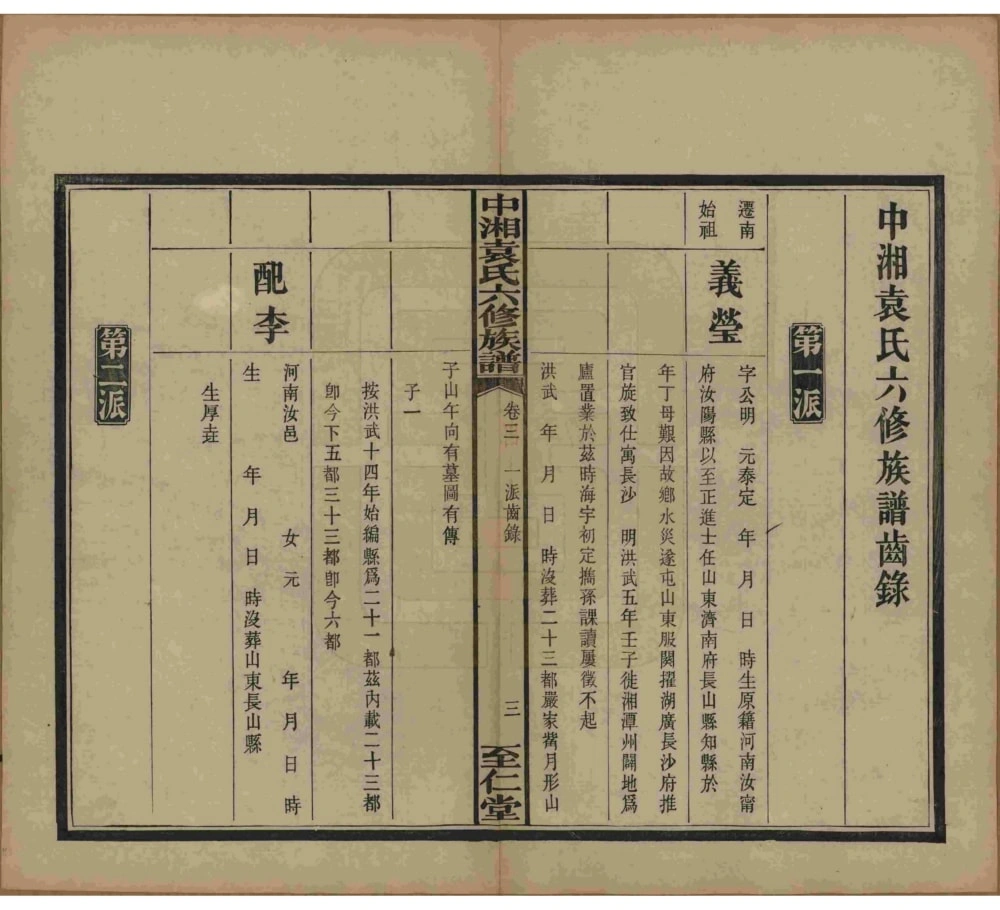 中湘袁氏六修族譜齒錄
第一派
遷南
始祖
義瑩
字公明　元泰定　年　月　日　時生原籍河南汝甯
府汝陽縣以至正進士任山東濟南府長山縣知縣於
年丁母艱因故鄉水災遂屯山東服闋擢湖廣長沙府推
官旋致仕寓長沙　明洪武五年壬子徙湘潭州闢地爲
廬置業於茲時海宇初定攜孫課讀屢徵不起
洪武　年　月　日　時沒葬二十三都嚴家觜月形山
中湘袁氏六修族譜
卷三　一派齒錄
三
至仁堂
子山午向有墓圖有傳
子一
按洪武十四年始編縣爲二十一都茲内載二十三都
卽今下五都三十三都卽今六都
配李
河南汝邑　女元　年　月　日　時
生　年　月　日　時沒葬山東長山縣
生厚垚
第二派